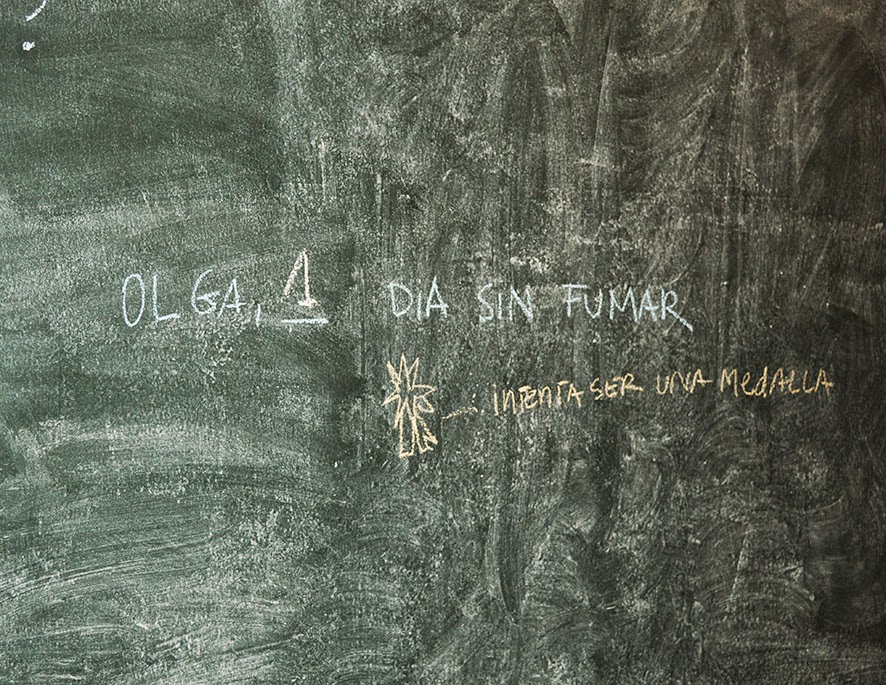 OLGA, 1 DIA SIN FUMAR
INTENTA SER UNA MEdALLA